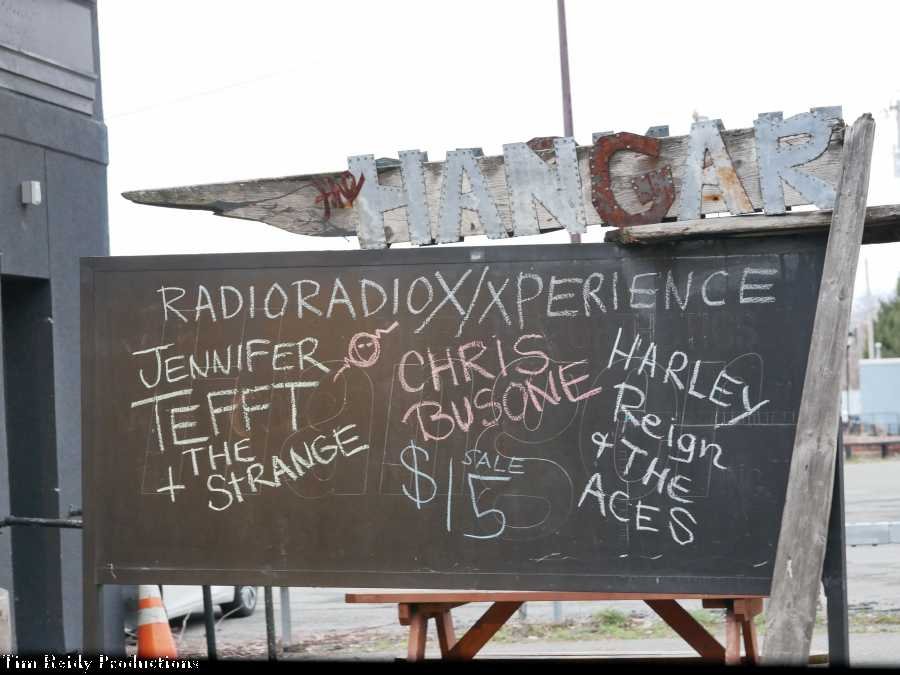 HANGAR
RADIORADIOX/XPERIENCE
JENNIFER
TEFFT
+ THE
STRANGE
CHRIS
BUSONE
$15 SALE
HARLEY
Reign
& THE
ACES
Tim Reidy Productions